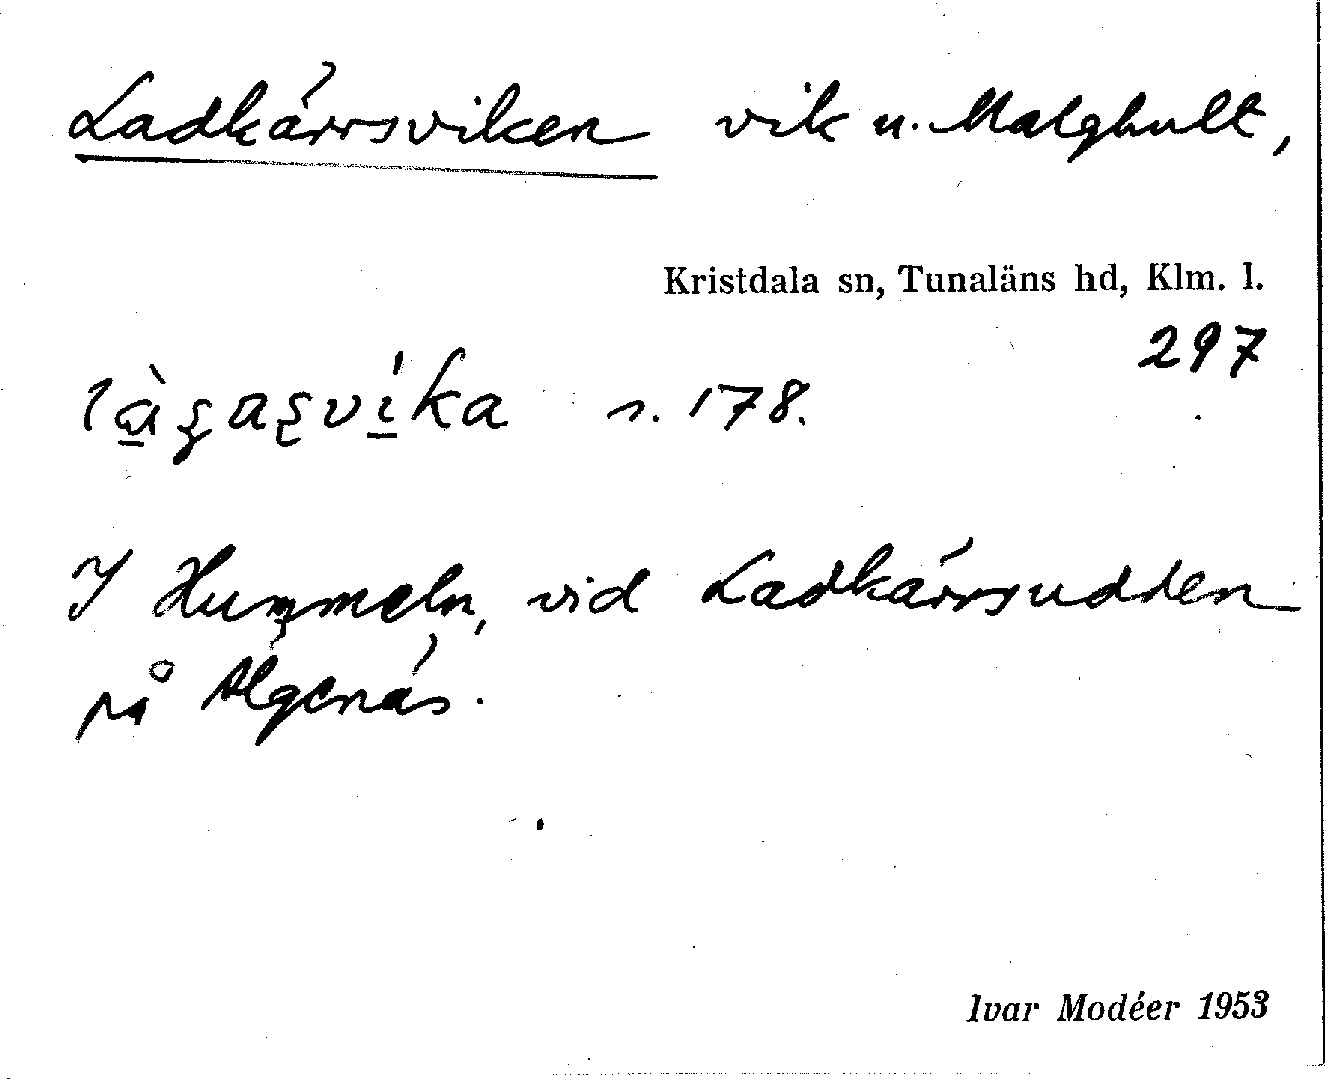 Ladkärrsviken vik u. Malghult,
Kristdala sn, Tunaläns hd, Klm. l.
297
s. 178.
I Hummeln, vid Ladkärrsudden
på Älgenäs.
Ivar Modéer 1953